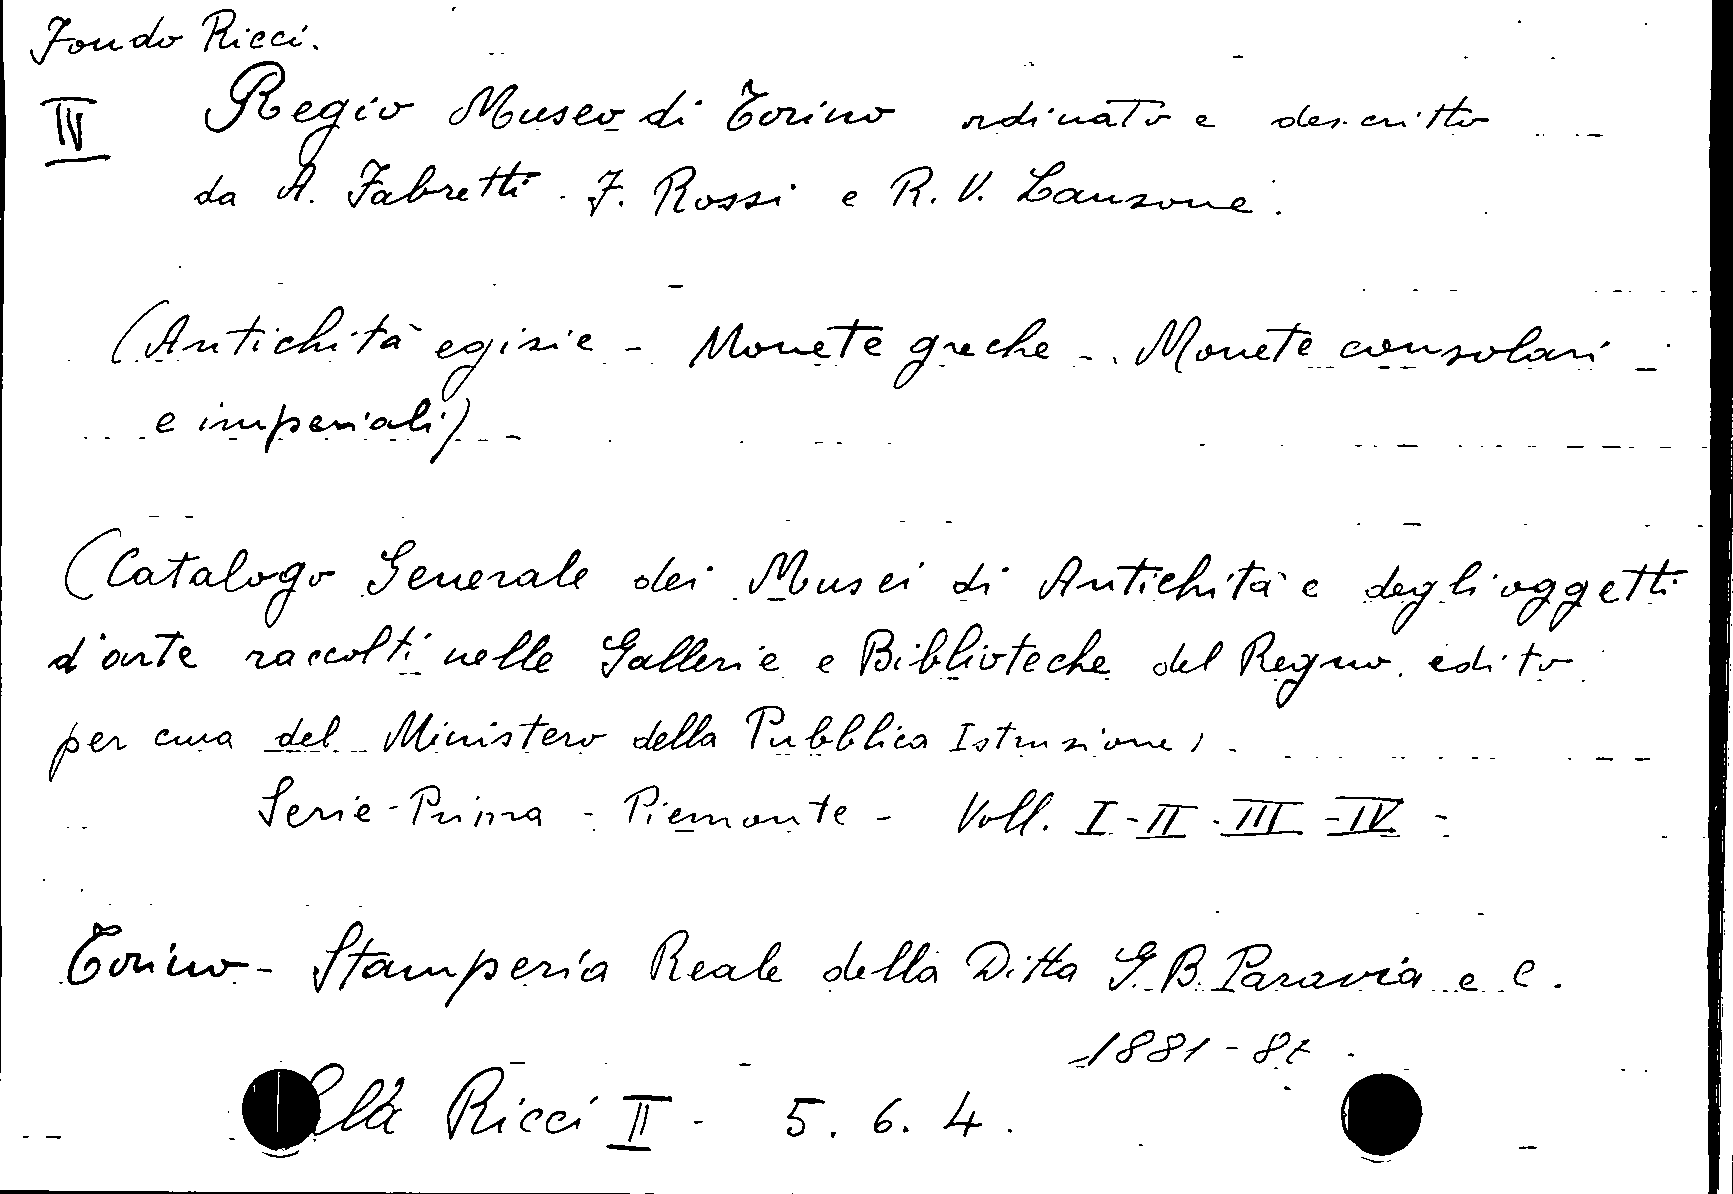 Fondo Ricci.
IV Regio Museo di Torino ordinato e descritto
da A. Fabretti. F. Rossi e R. V. Lanzone.
(Antichità egizie - Monete greche - Monete consolari -
e imperiali)
(Catalogo Generale dei Musei di Antichità e degli oggetti
d'arte raccolti nelle Gallerie e Biblioteche del Regno. edito
per cura del Ministero della Pubblica Istruzione)
Serie Prima - Piemonte - Voll. I - II - III - IV -
Torino - Stamperia Reale della Ditta G. B. Paravia e C.
1881 -
Ricci II - 5. 6. 4.